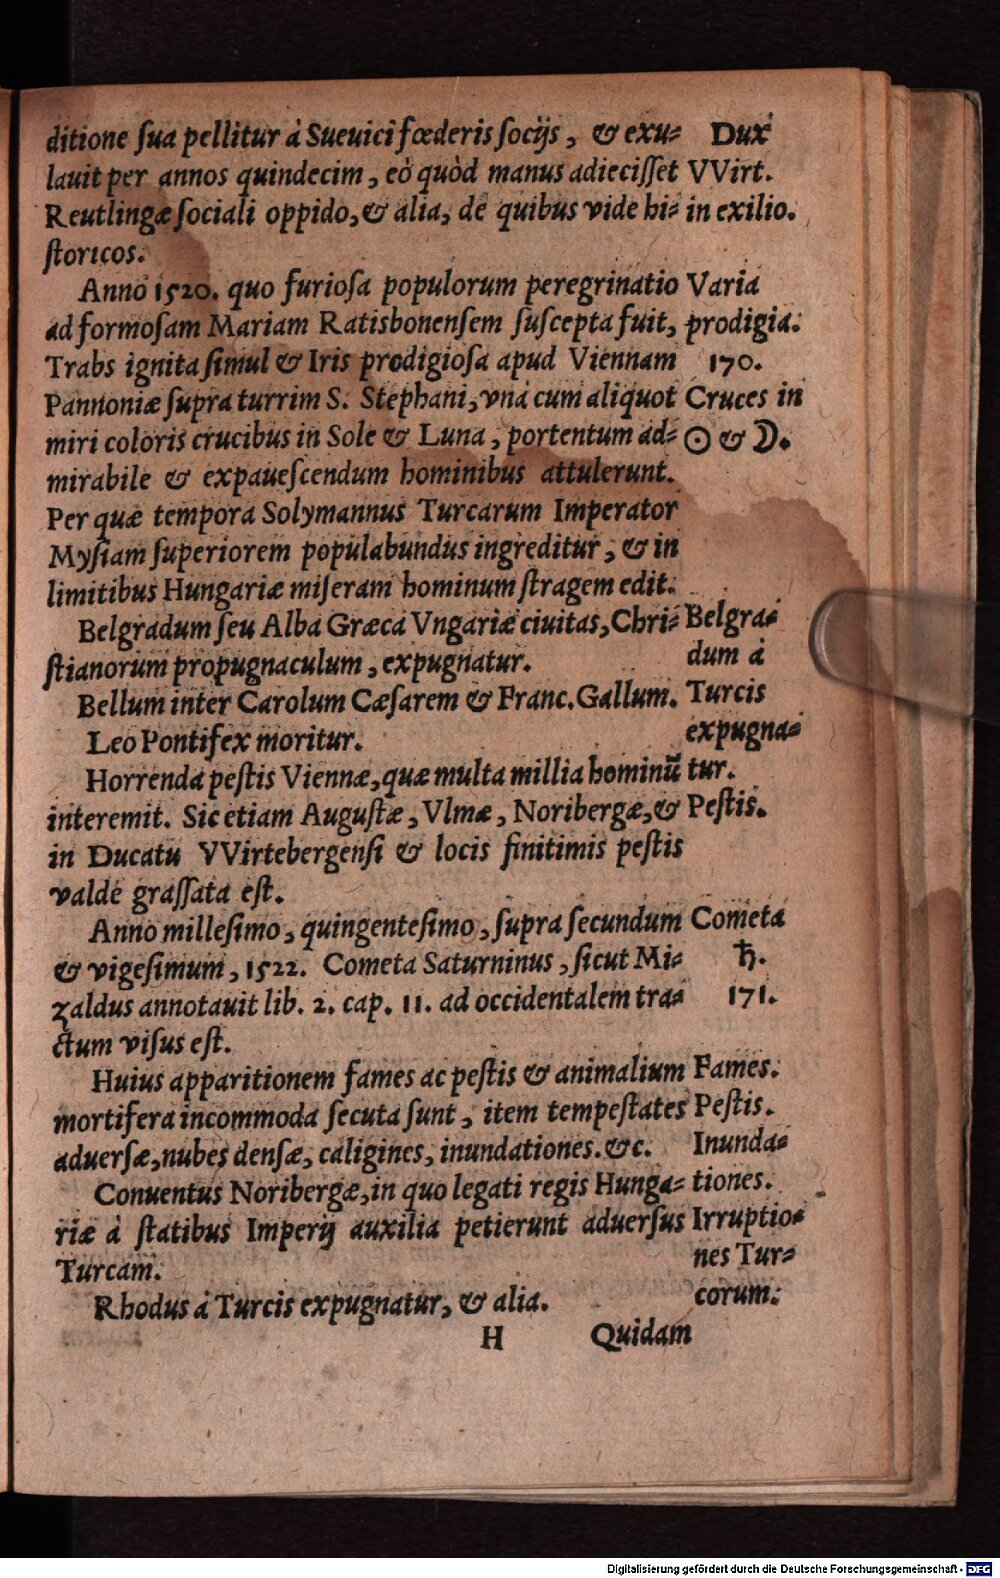 ditione ſua pellitur à Sueuici fœderis ſocijs, & exu-
lauit per annos quindecim, eò quòd manus adieciſſet
Reutlingæ ſociali oppido, & alia, de quibus vide hi-
ſtoricos.
Dux
VVirt.
in exilio.
Anno 1520. quo furioſa populorum peregrinatio
ad formoſam Mariam Ratisbonenſem ſuſcepta fuit,
Trabs ignita ſimul & Iris prodigioſa apud Viennam
Pannoniæ ſupra turrim S. Stephani, vnà cum aliquot
miri coloris crucibus in Sole & Luna, portentum ad-
mirabile & expaueſcendum hominibus attulerunt.
Per quæ tempora Solymannus Turcarum Imperator
Myſiam ſuperiorem populabundus ingreditur, & in
limitibus Hungariæ miſeram hominum ſtragem edit.
Varia
prodigia.
170.
Cruces in
☉ & ☽.
Belgradum ſeu Alba Græca Vngariæ ciuitas, Chri-
ſtianorum propugnaculum, expugnatur.
Bellum inter Carolum Cæſarem & Franc. Gallum.
Leo Pontifex moritur.
Belgra-
dum à
Turcis
expugna-
tur.
Horrenda peſtis Viennæ, quæ multa millia hominũ
interemit. Sic etiam Auguſtæ, Vlmæ, Noribergæ, &
in Ducatu VVirtebergenſi & locis finitimis peſtis
valdè graſſata eſt.
Peſtis.
Anno milleſimo, quingenteſimo, ſupra ſecundum
& vigeſimum, 1522. Cometa Saturninus, ſicut Mi-
zaldus annotauit lib. 2. cap. 11. ad occidentalem tra-
ctum viſus eſt.
Cometa
♄.
171.
Huius apparitionem fames ac peſtis & animalium
mortifera incommoda ſecuta ſunt, item tempeſtates
aduerſæ, nubes denſæ, caligines, inundationes. &c.
Fames.
Peſtis.
Inunda-
tiones.
Conuentus Noribergæ, in quo legati regis Hunga-
riæ à ſtatibus Imperij auxilia petierunt aduerſus
Turcam.
Rhodus à Turcis expugnatur, & alia.
Irruptio-
nes Tur-
corum.
H Quidam
Digitalisierung gefördert durch die Deutsche Forschungsgemeinschaft - DFG